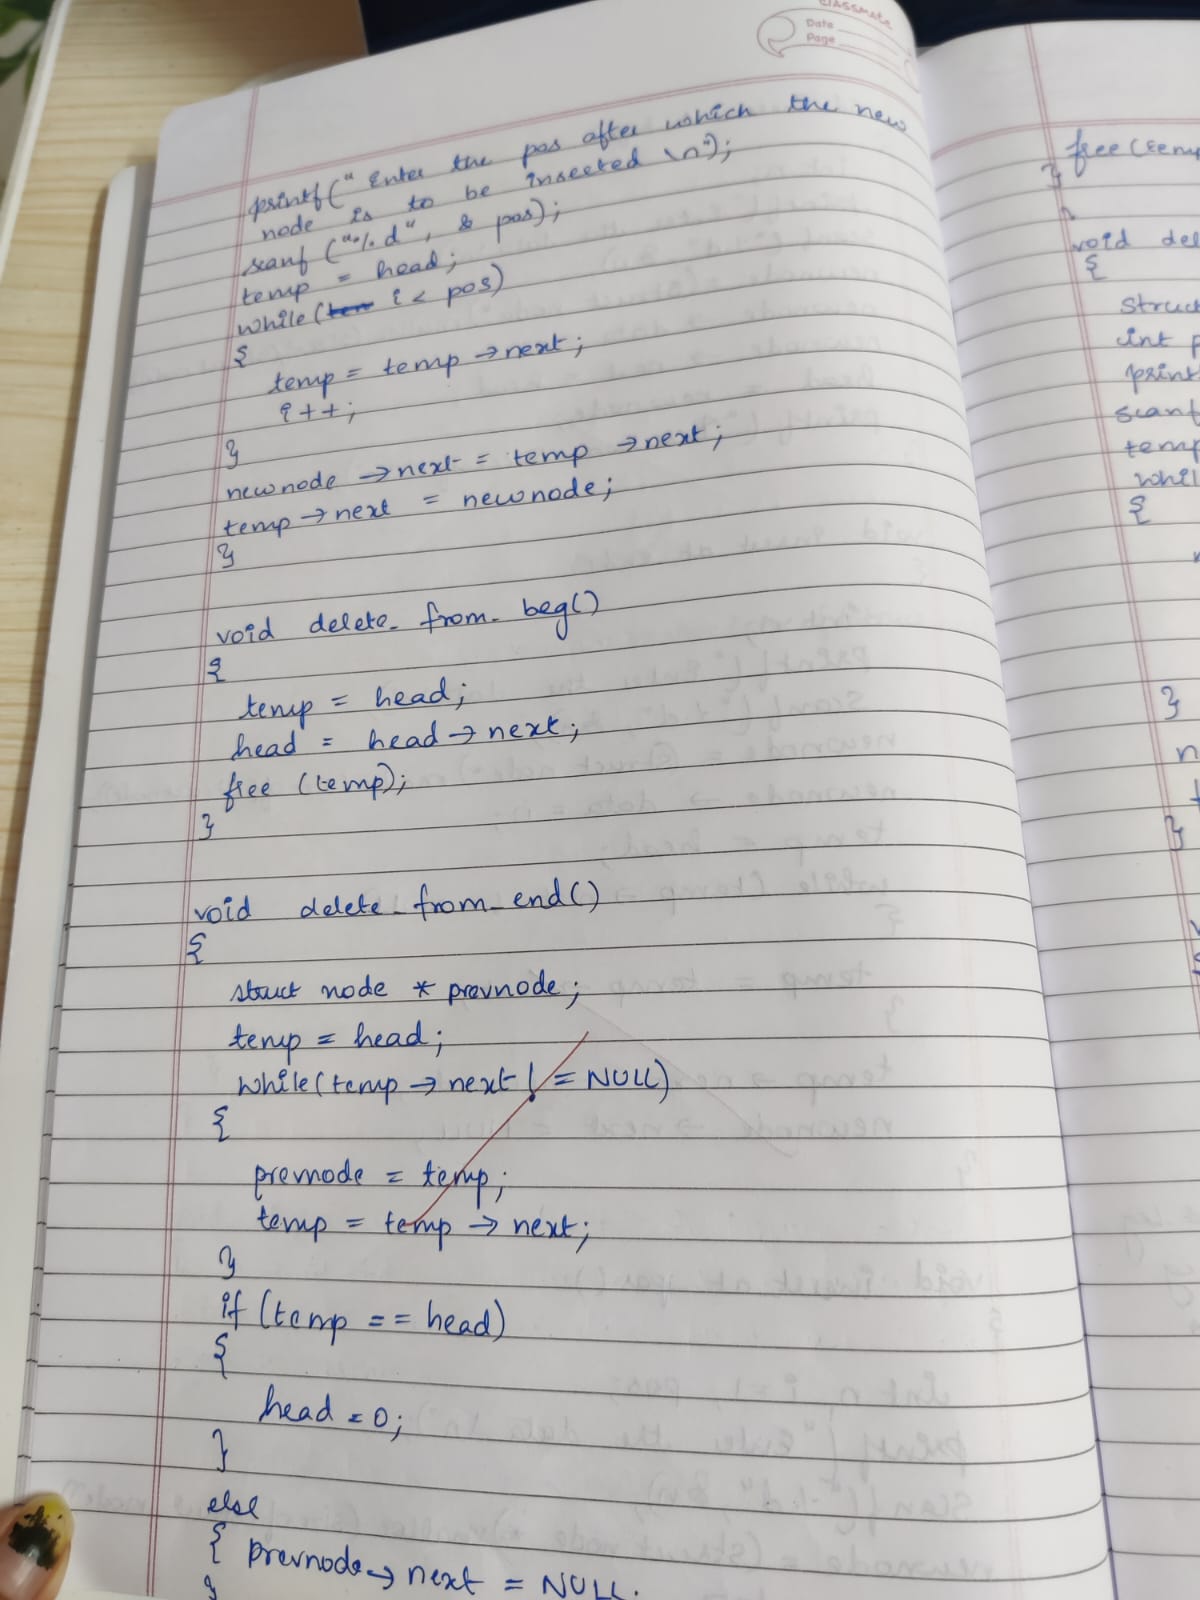 classmate
Date
Page
printf(" Enter the pos after which the new
node is to be inserted \n");
scanf ("%d", & pos);
temp = head;
while( i < pos)
{
temp = temp →next;
i++;
}
newnode →next = temp →next;
temp→next = newnode;
}
void delete_from_beg()
{
temp = head;
head = head→next;
free (temp);
}
void delete_from_end()
{
struct node * prevnode;
temp = head;
while(temp→next != NULL)
{
prevnode = temp;
temp = temp → next;
}
if (temp == head)
{
head = 0;
}
else
{ prevnode→next = NULL.
}
free(temp
}
void del
{
struct
int p
print
scanf
temp
whil
{
}
n
t
}